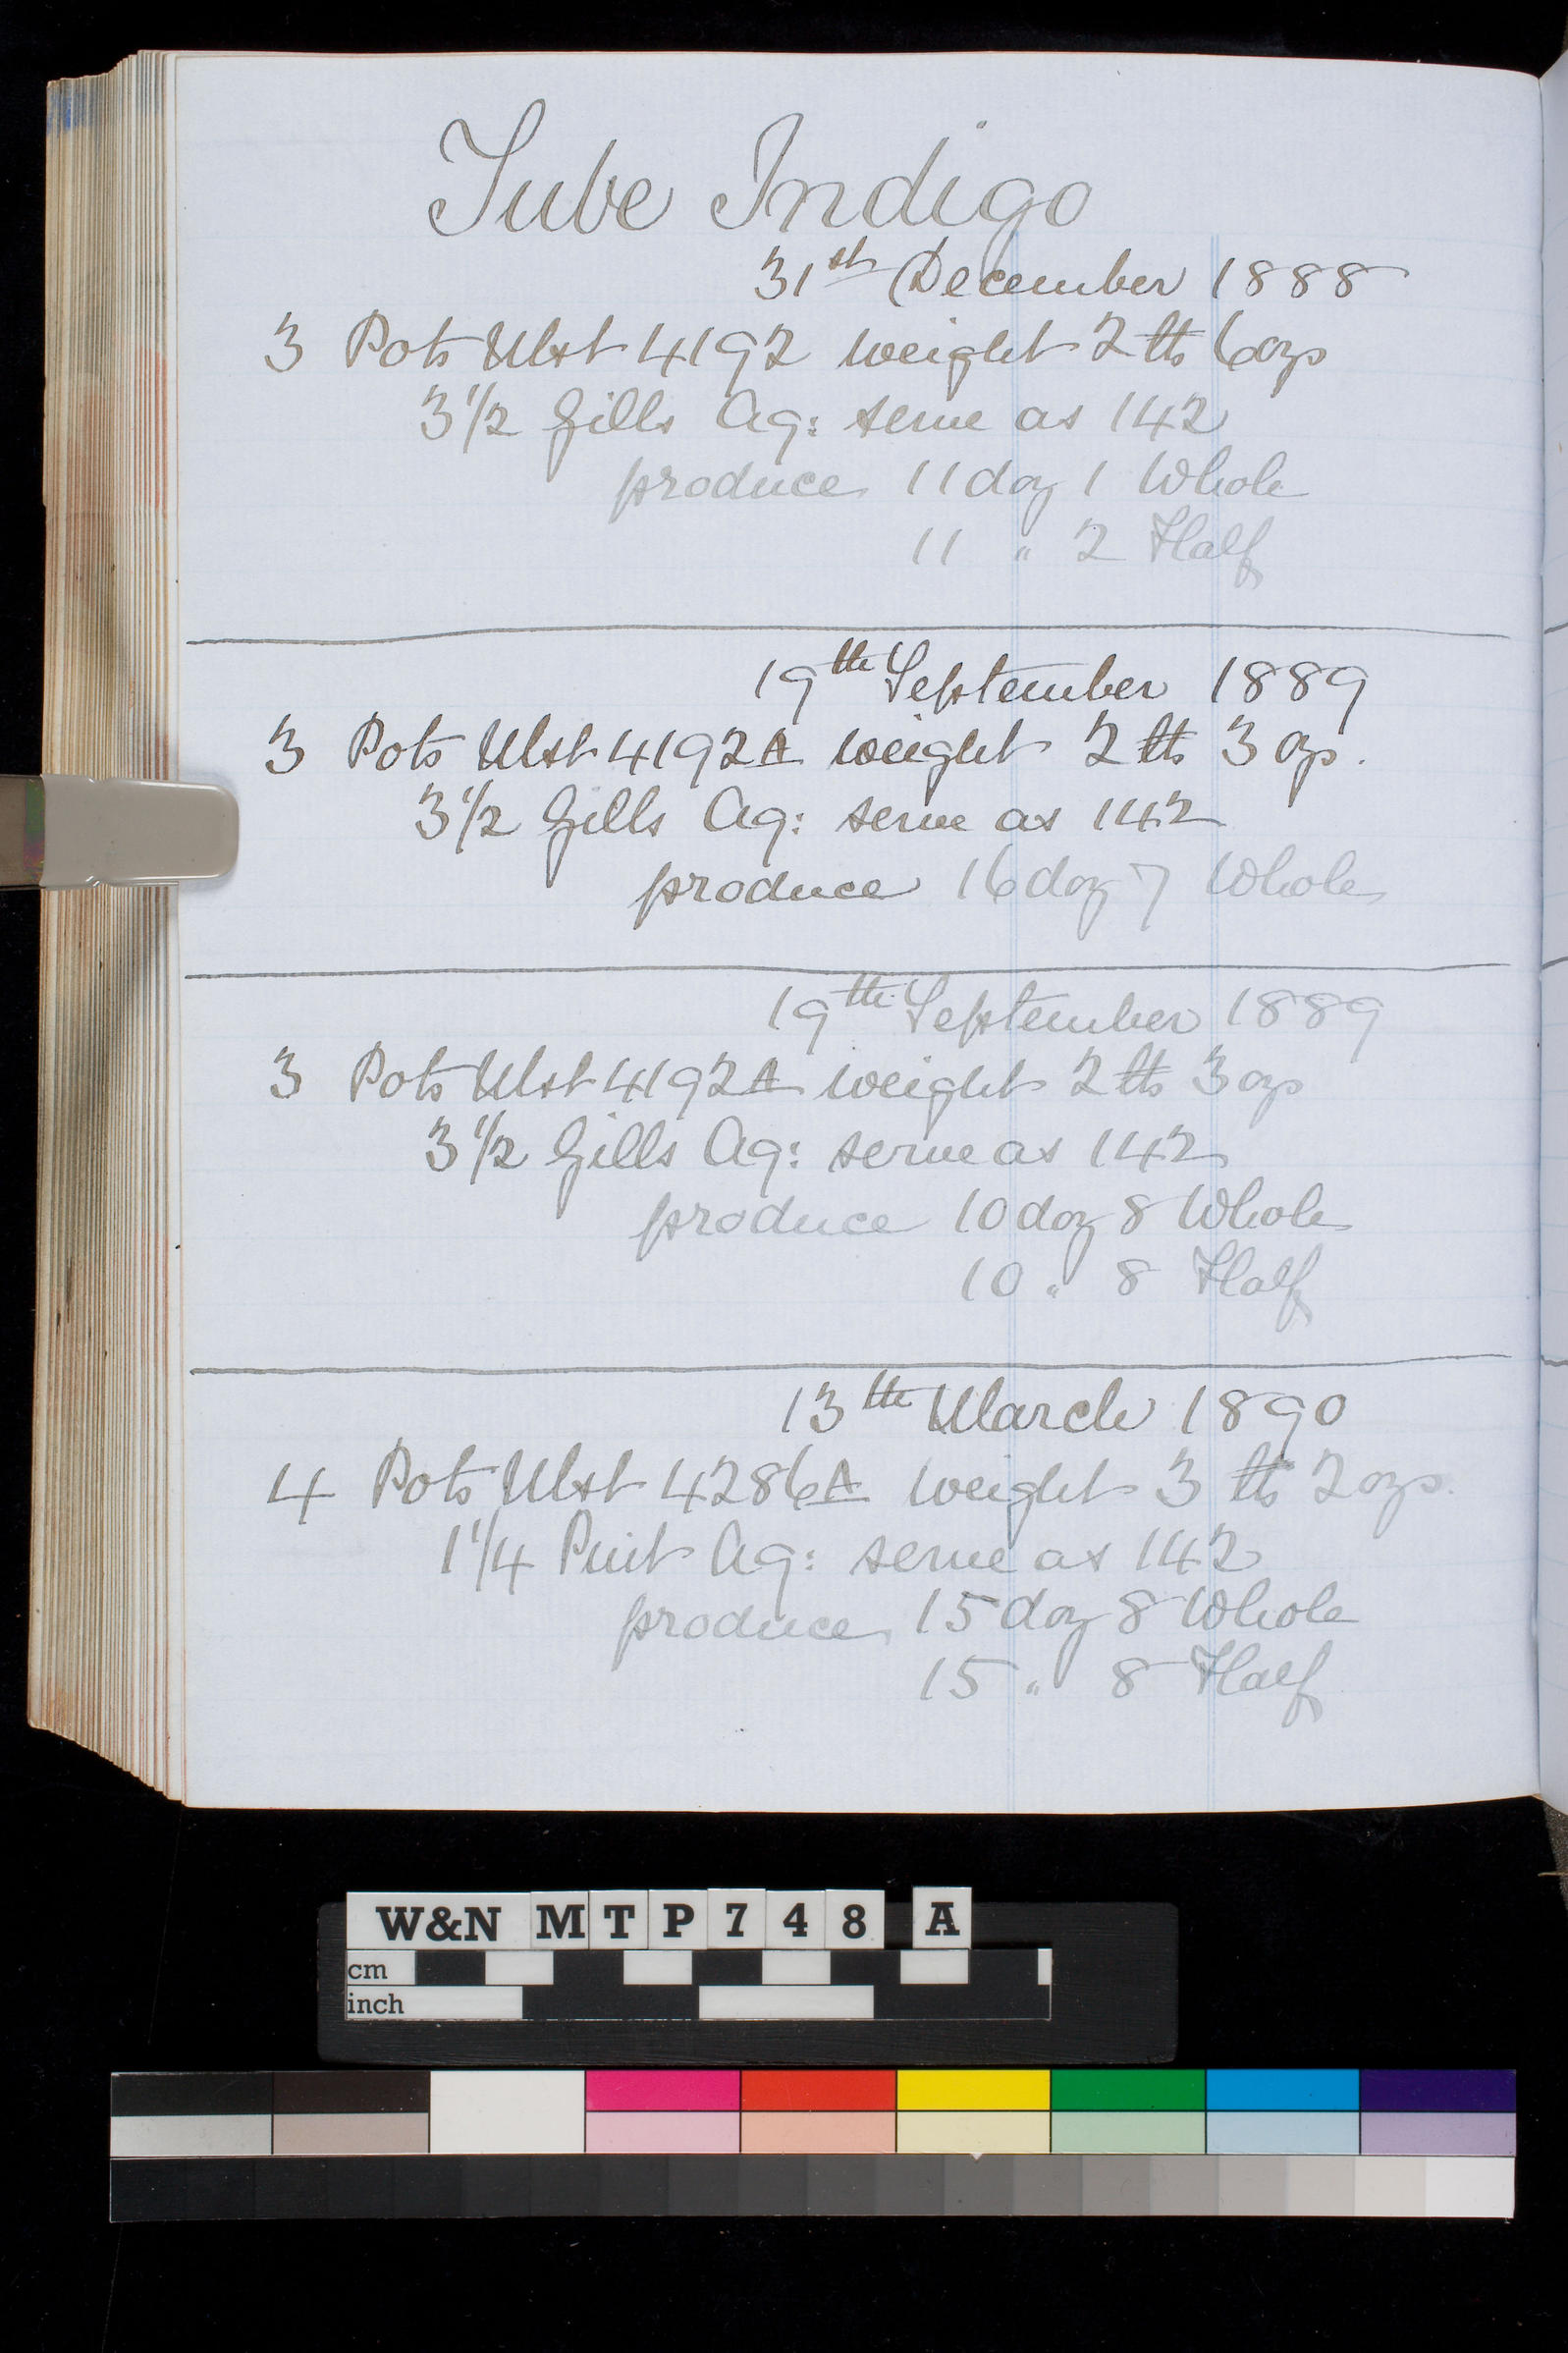 Tube Indigo
31st December 1888
3 Pots Mxt 4192 weight 2 lbs 6 ozs
3 1/2 Gills Aq: serve as 142
produce 11 doz 1 Whole
11 " 2 Half
19th September 1889
3 Pots Mxt 4192A weight 2 lbs 3 ozs.
3 1/2 Gills Aq: serve as 142
produce 16 doz 7 Whole
19th September 1889
3 Pots Mxt 4192A weight 2 lbs 3 ozs
3 1/2 Gills Aq: serve as 142
produce 10 doz 8 Whole
10 " 8 Half
13th March 1890
4 Pots Mxt 4286A weight 3 lbs 2 ozs.
1 1/4 Pint Aq: serve as 142
produce 15 doz 8 Whole
15 " 8 Half
W&N MTP748 A
cm
inch